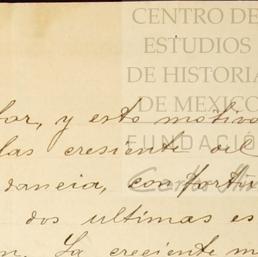 CENTRO DE
ESTUDIOS
DE HISTORIA
DE MEXICO
FUNDACIÓN
y esto motivo
las cresiente del
dos ultimas es
La creciente m